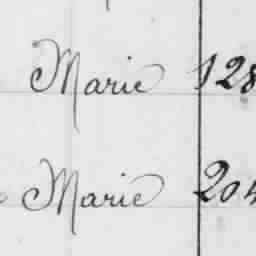 Marie 128
Marie 204